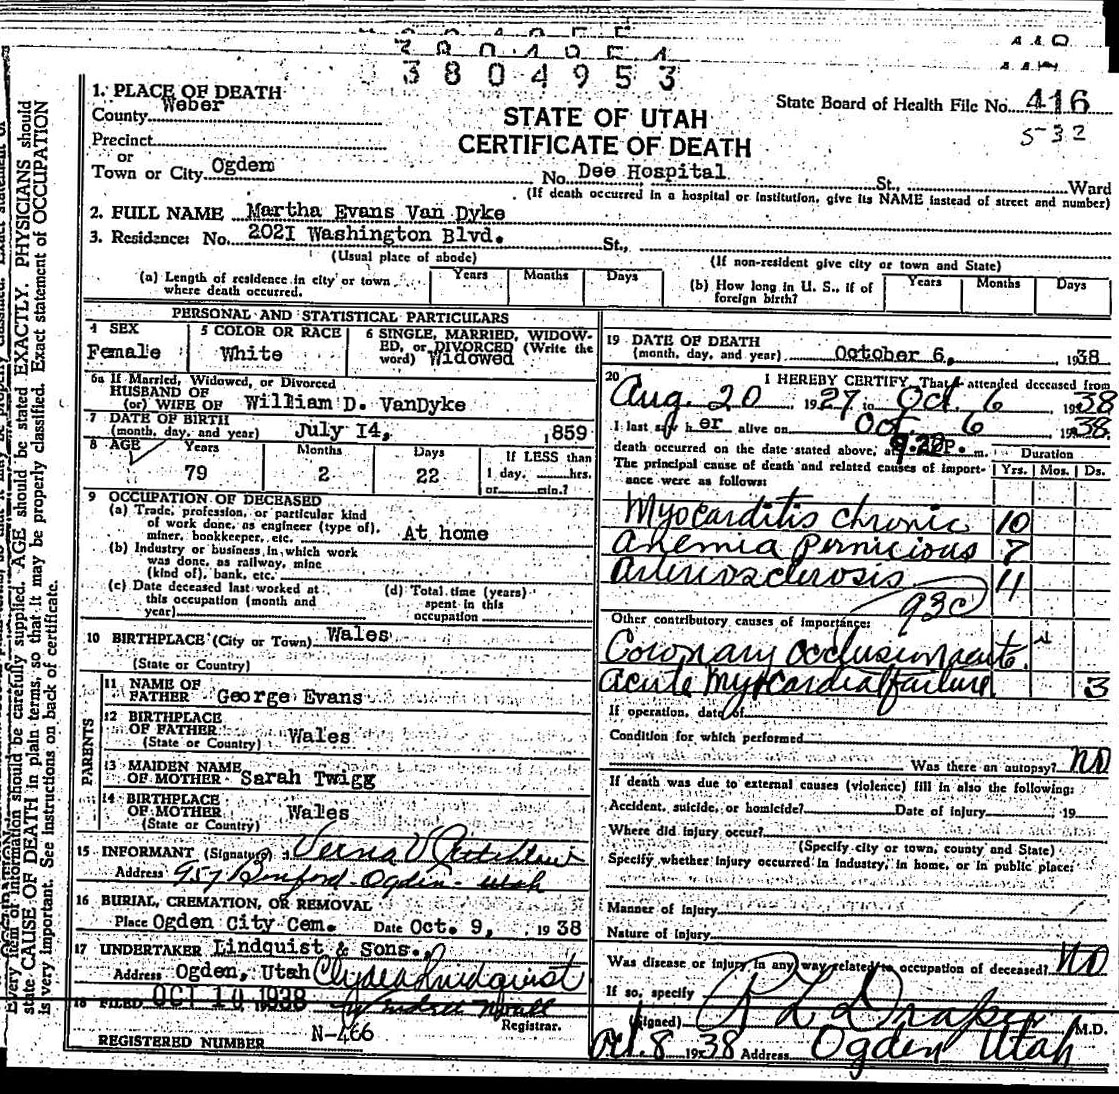 3804953
1. PLACE OF DEATH
County Weber
Precinct
or
Town or City Ogden
STATE OF UTAH
CERTIFICATE OF DEATH
State Board of Health File No. 416
532
No. Dee Hospital St., Ward
(If death occurred in a hospital or institution, give its NAME instead of street and number)
2. FULL NAME Martha Evans Van Dyke
3. Residence: No. 202I Washington Blvd. St.,
(Usual place of abode) (If non-resident give city or town and State)
(a) Length of residence in city or town where death occurred. Years Months Days
(b) How long in U. S., if of foreign birth? Years Months Days
PERSONAL AND STATISTICAL PARTICULARS
4 SEX
Female
5 COLOR OR RACE
White
6 SINGLE, MARRIED, WIDOWED, or DIVORCED (Write the word) Widowed
6a If Married, Widowed, or Divorced
HUSBAND OF
(or) WIFE OF William D. VanDyke
7 DATE OF BIRTH
(month, day, and year) July I4, 1859
8 AGE Years Months Days If LESS than
79 2 22 1 day, hrs.
or min.?
9 OCCUPATION OF DECEASED
(a) Trade, profession, or particular kind
of work done, as engineer (type of),
miner, bookkeeper, etc. At home
(b) Industry or business in which work
was done, as railway, mine
(kind of), bank, etc.
(c) Date deceased last worked at
this occupation (month and
year)
(d) Total time (years)
spent in this
occupation
10 BIRTHPLACE (City or Town) Wales
(State or Country)
PARENTS
11 NAME OF
FATHER George Evans
12 BIRTHPLACE
OF FATHER Wales
(State or Country)
13 MAIDEN NAME
OF MOTHER Sarah Twigg
14 BIRTHPLACE
OF MOTHER Wales
(State or Country)
15 INFORMANT (Signature) Verna V
Address Ogden - Utah
16 BURIAL, CREMATION, OR REMOVAL
Place Ogden City Cem. Date Oct. 9, 1938
17 UNDERTAKER Lindquist & Sons.,
Address Ogden, Utah Clyde A Lindquist
18 FILED OCT 10 1938
Registrar.
REGISTERED NUMBER N-466
19 DATE OF DEATH
(month, day, and year) October 6, 1938
20 I HEREBY CERTIFY, That I attended deceased from
Aug. 20 1927 to Oct. 6 1938
I last saw her alive on Oct. 6 1938.
death occurred on the date stated above, at 9.20P. m.
The principal cause of death and related causes of importance were as follows:
Duration
Yrs. Mos. Ds.
Myocarditis chronic 10
Anemia Pernicious 7
Arteriosclerosis 11
93c
Other contributory causes of importance:
Coronary occlusion acute
Acute Myocardial failure 3
If operation, date of
Condition for which performed
Was there an autopsy? No
If death was due to external causes (violence) fill in also the following:
Accident, suicide, or homicide? Date of injury 19
Where did injury occur?
(Specify city or town, county and State)
Specify whether injury occurred in industry, in home, or in public place:
Manner of injury
Nature of injury
Was disease or injury in any way related to occupation of deceased? No
If so, specify
(Signed) R L Draper M.D.
Oct. 8 1938 Address Ogden Utah
Every item of information should be carefully supplied. AGE should be stated EXACTLY. PHYSICIANS should
state CAUSE OF DEATH in plain terms, so that it may be properly classified. Exact statement of OCCUPATION
is very important. See instructions on back of certificate.